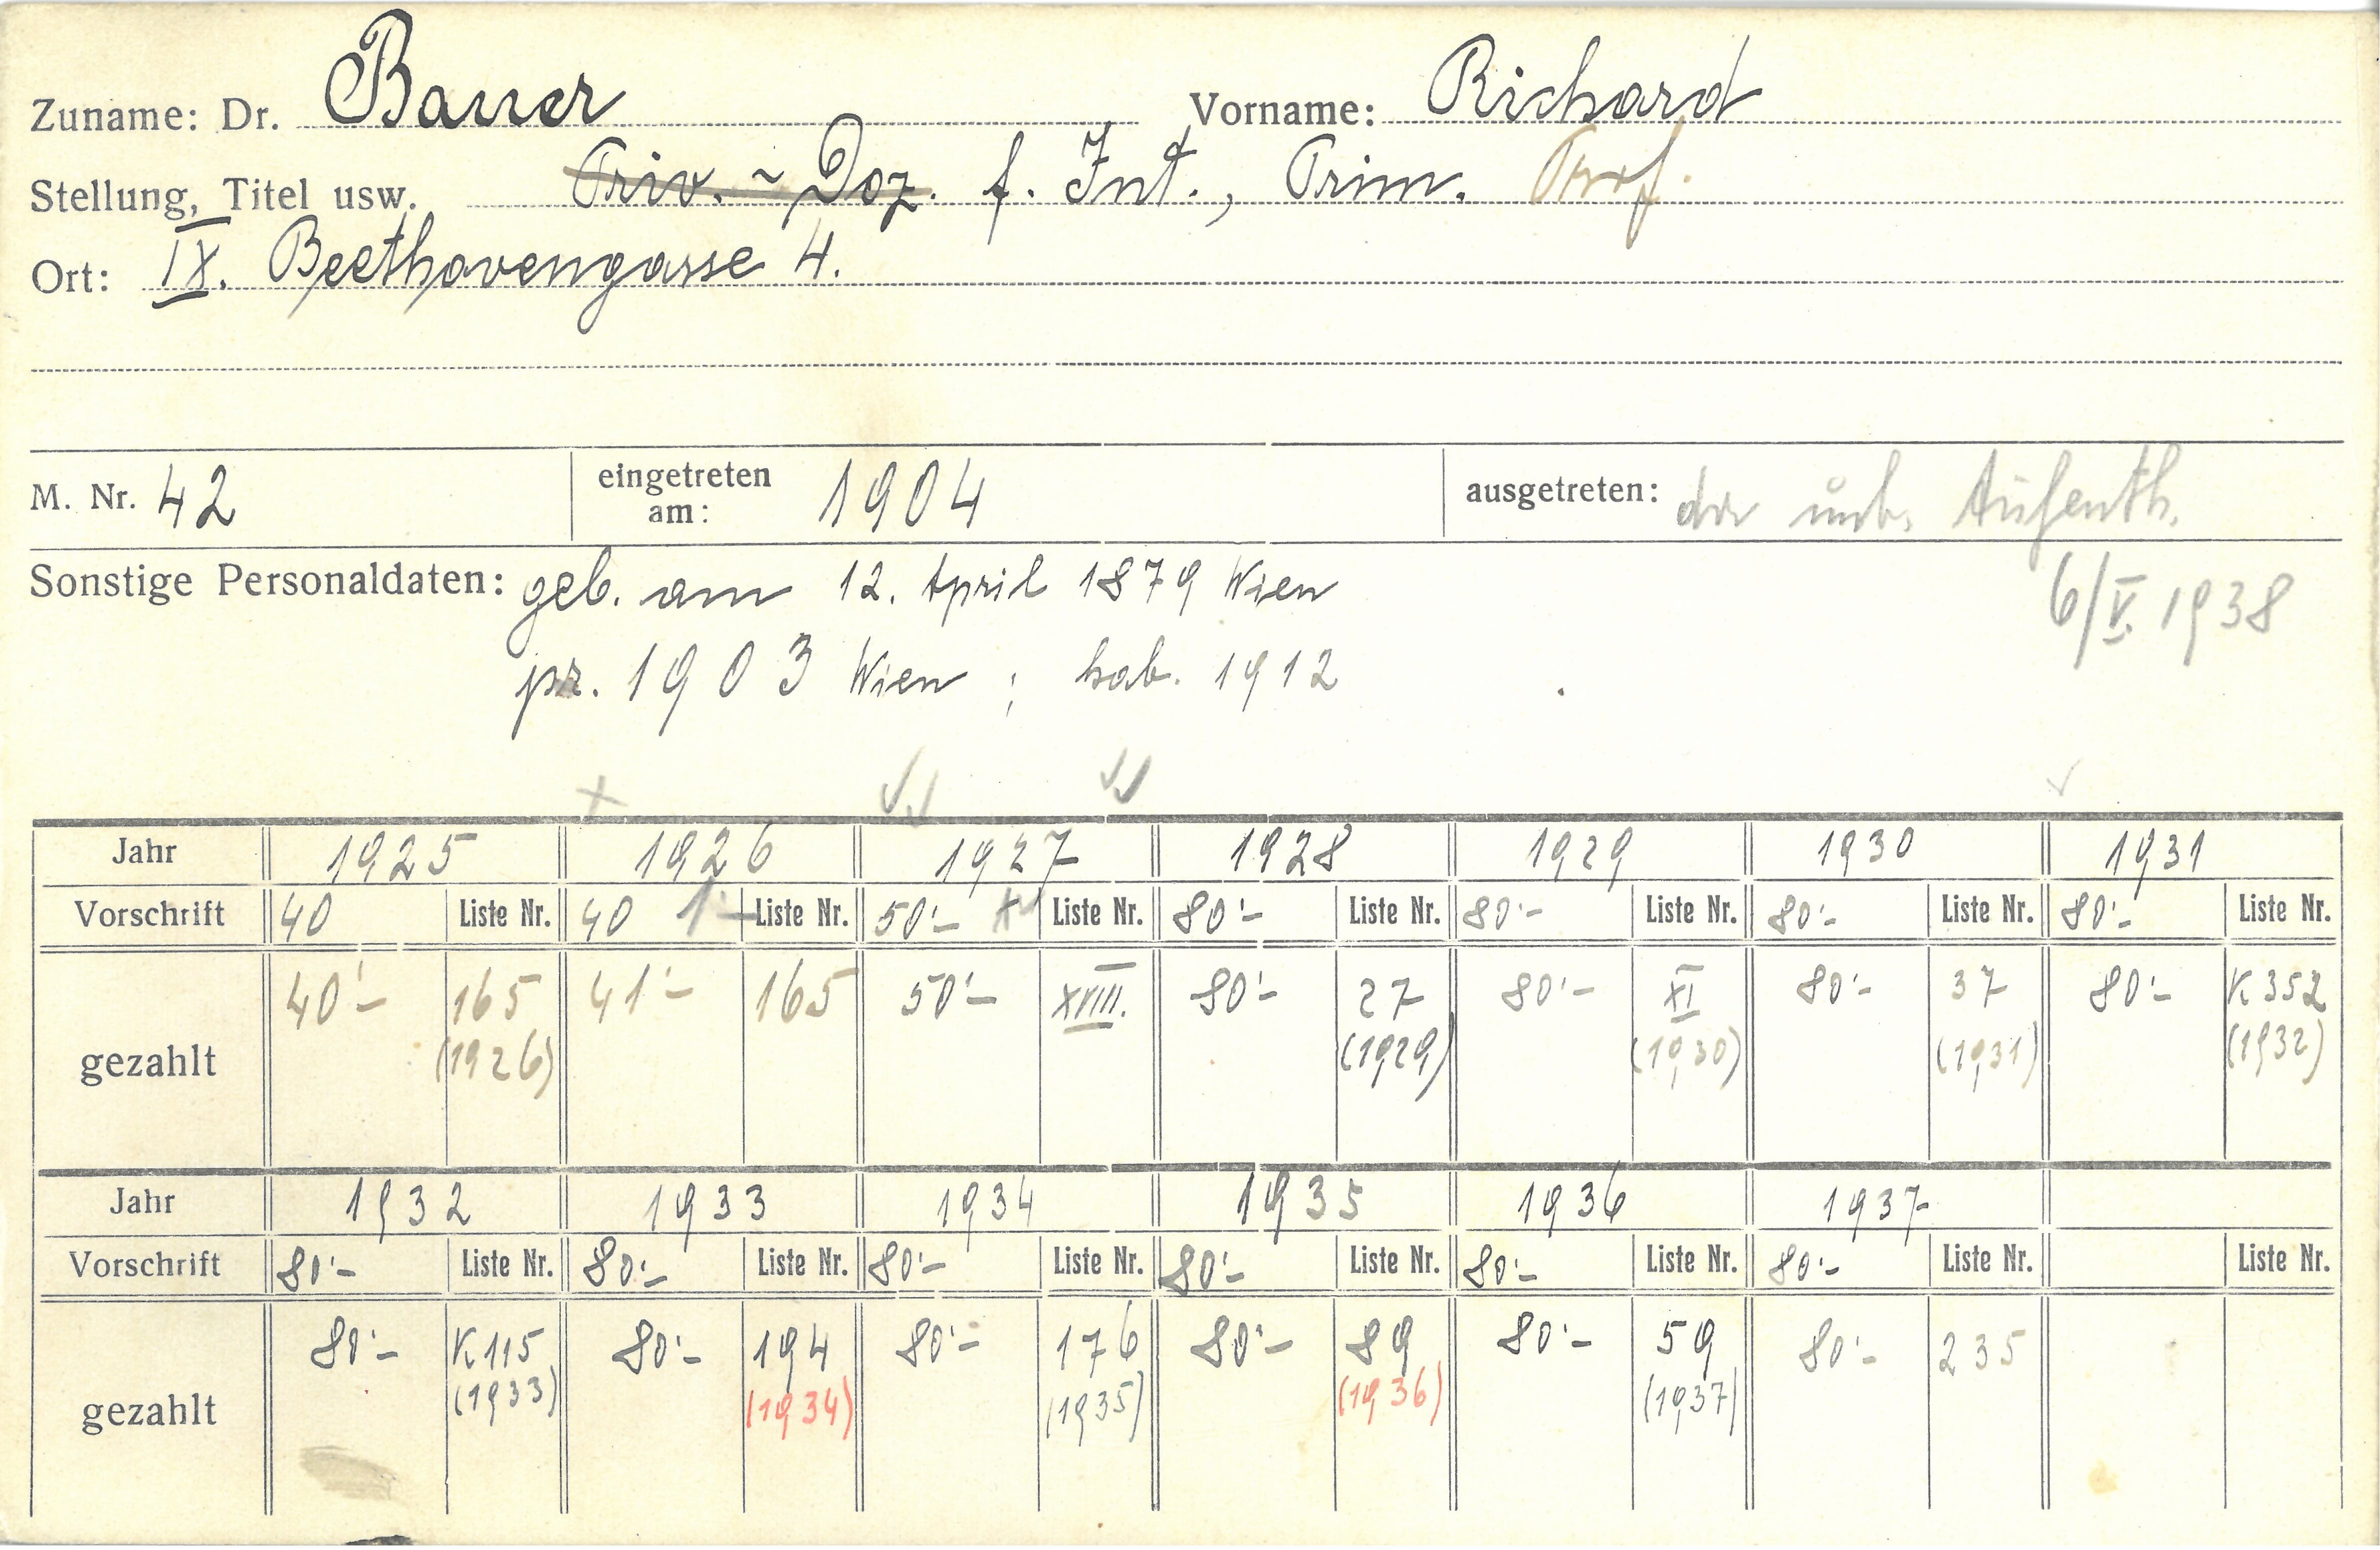 Zuname: Dr. Bauer Vorname: Richard
Stellung, Titel usw. Priv.-Doz. f. Int., Prim. Prof.
Ort: IX. Beethovengasse 4.
M. Nr. 42 eingetreten am: 1904 ausgetreten: unb. Aufenth.
6/V. 1938
Sonstige Personaldaten: geb. am 12. April 1879 Wien
pr. 1903 Wien ; hab. 1912
Jahr 1925 1926 1927 1928 1929 1930 1931
Vorschrift 40 Liste Nr. 40 1.- Liste Nr. 50'- Liste Nr. 80'- Liste Nr. 80'- Liste Nr. 80'- Liste Nr. 80'- Liste Nr.
gezahlt 40'- 165 (1926) 41'- 165 50'- XVIII. 80'- 27 (1929) 80'- XI (1930) 80'- 37 (1931) 80'- K 352 (1932)
Jahr 1932 1933 1934 1935 1936 1937
Vorschrift 80'- Liste Nr. 80'- Liste Nr. 80'- Liste Nr. 80'- Liste Nr. 80'- Liste Nr. 80'- Liste Nr. Liste Nr.
gezahlt 80'- K 115 (1933) 80'- 194 (1934) 80'- 176 (1935) 80'- 89 (1936) 80'- 59 (1937) 80'- 235